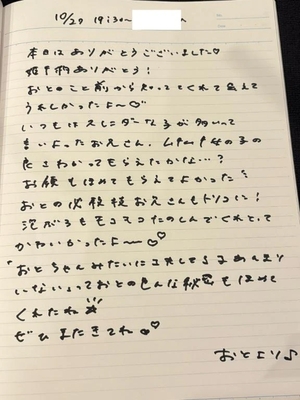 10/27 19:30~
本日はありがとうございました♡
指名ありがとう!
おとのこと前から知っててくれて会えて
うれしかったよ〜♡
いつもはスレンダーな子が多いって
言いよったお兄さん、ムチムチ女の子の
良さわかってもらえたかな…?
お顔もほめてもらえてよかった
おとの必殺技お兄さんもトリコに!
泡がちもモコモコたのしんでくれとって
かわいかったよ〜♡♡
「おとちゃんみたいに工夫してる子あんまり
いない」っておとの色んな秘密もほめて
くれたね☆
ぜひまたきてね♡♡
おとより♪